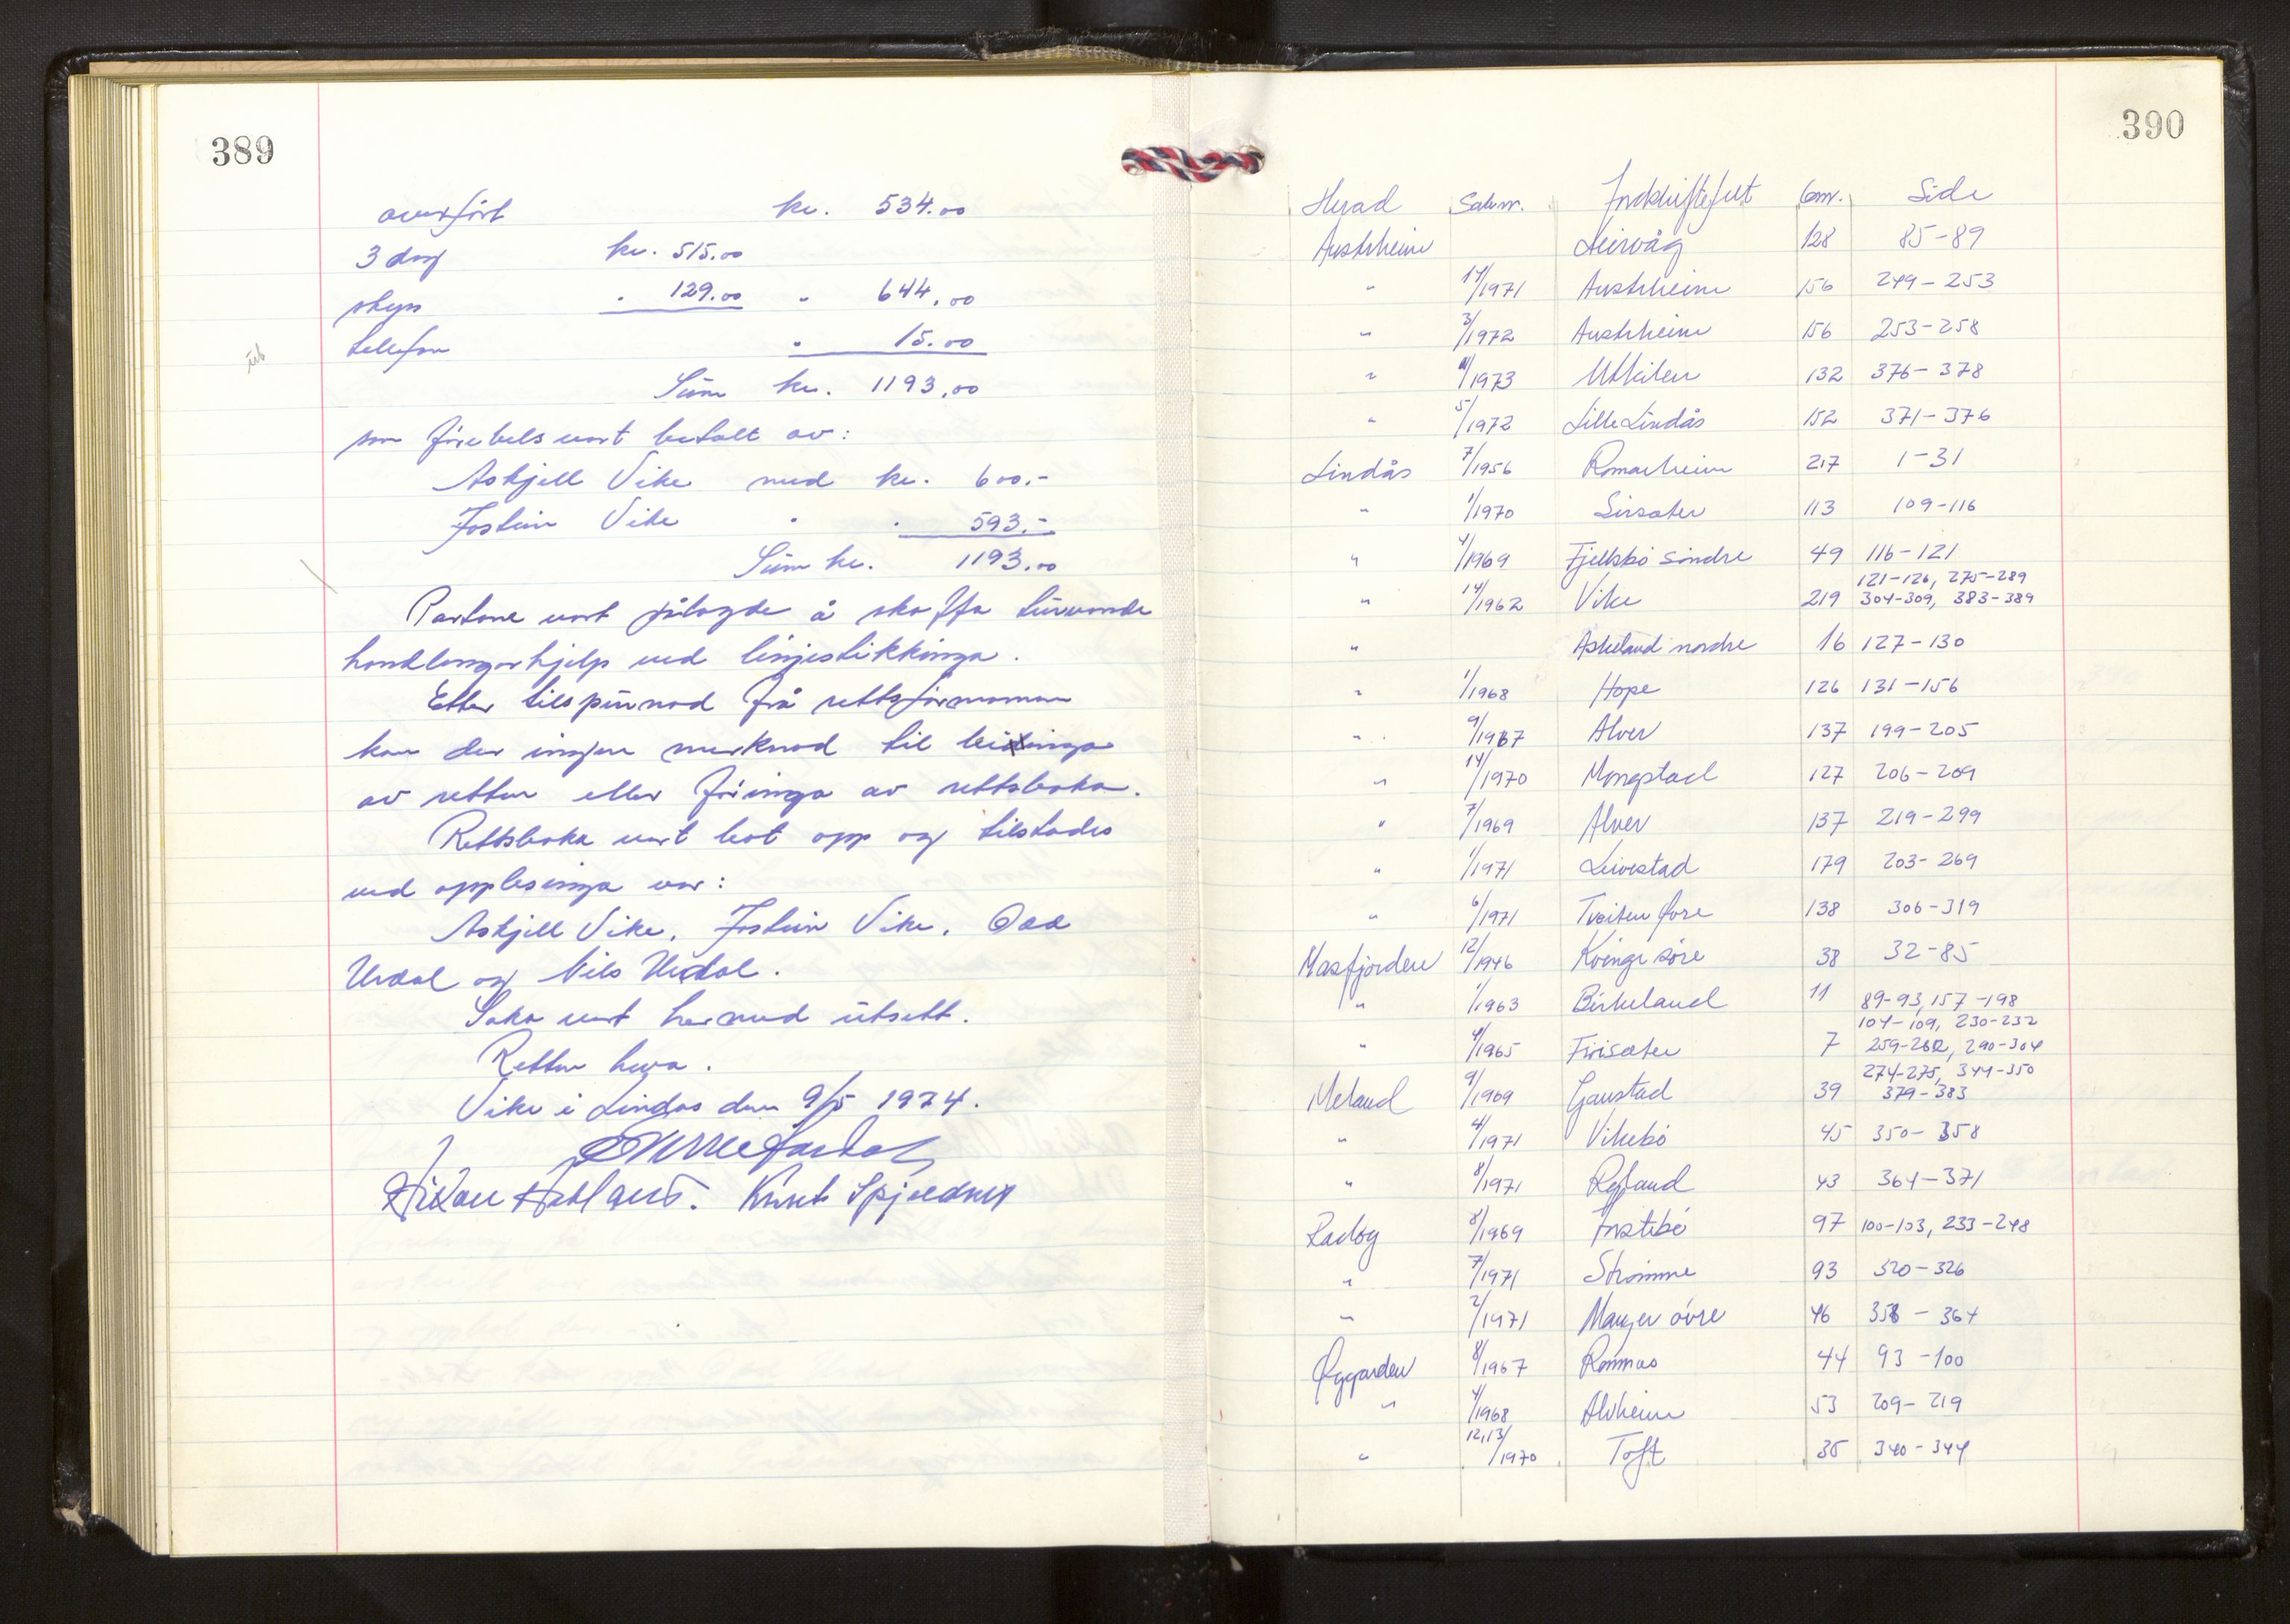 389
overført kr. 534.00
3 dag kr. 515.00
skyss " 129.00 " 644.00
telefon " 15.00
Sum kr. 1193.00
som førebels vart betalt av:
Askjell Vike med kr. 600.-
Jostein Vike " " 593.-
Sum kr. 1193.00
Partane vart pålagde å skaffa turvande
handlangarhjelp ved linjestikkinga.
Etter tilspurnad frå rettsformannen
kom der ingen merknad til leiinga
av retten eller føringa av rettsboka.
Rettsboka vart lest opp og tilstades
ved opplesinga var:
Askjell Vike, Jostein Vike,
Urdal og Nils Urdal.
Saka vart hermed utsett.
Retten heva.
Vike i Lindås den 9/5 1974.
390
Herad Saknr. Jordskiftefelt Gnr. Side
Austrheim Leirvåg 128 85-89
" 14/1971 Austrheim 156 249-253
" 3/1972 Austrheim 156 253-258
" /1973 Utkilen 132 376-378
" 5/1972 Lille Lindås 152 371-376
Lindås 7/1956 Romarheim 217 1-31
" 1/1970 Sirsæter 113 109-116
" 4/1969 Fjellsbø søndre 49 116-121
" 14/1962 Vike 219 121-126, 275-289
304-309, 383-389
" Askeland nordre 16 127-130
" 1/1968 Hope 126 131-156
" 9/1967 Alver 137 199-205
" 14/1970 Mongstad 127 206-209
" 7/1969 Alver 137 219-299
" 1/1971 Leivestad 179 203-269
" 6/1971 Tveiten øvre 138 306-319
Masfjorden 12/1946 Kvinge søre 38 32-85
" 1/1963 Birkeland 11 89-93, 157-198
" 4/1965 Firisæter 7 104-109, 230-232
259-262, 290-304
Meland 9/1969 Gaustad 39 274-275, 344-350
379-383
" 4/1971 Vikebø 45 350-358
" 8/1971 Rylaud 43 364-371
Radøy 8/1969 97 100-103, 233-248
" 7/1971 Strømme 93 320-326
" 2/1971 Manger øvre 46 358-364
Øygarden 8/1967 Rommas 44 93-100
" 4/1968 Alvheim 53 209-219
" 12,13/1970 Toft 35 340-344